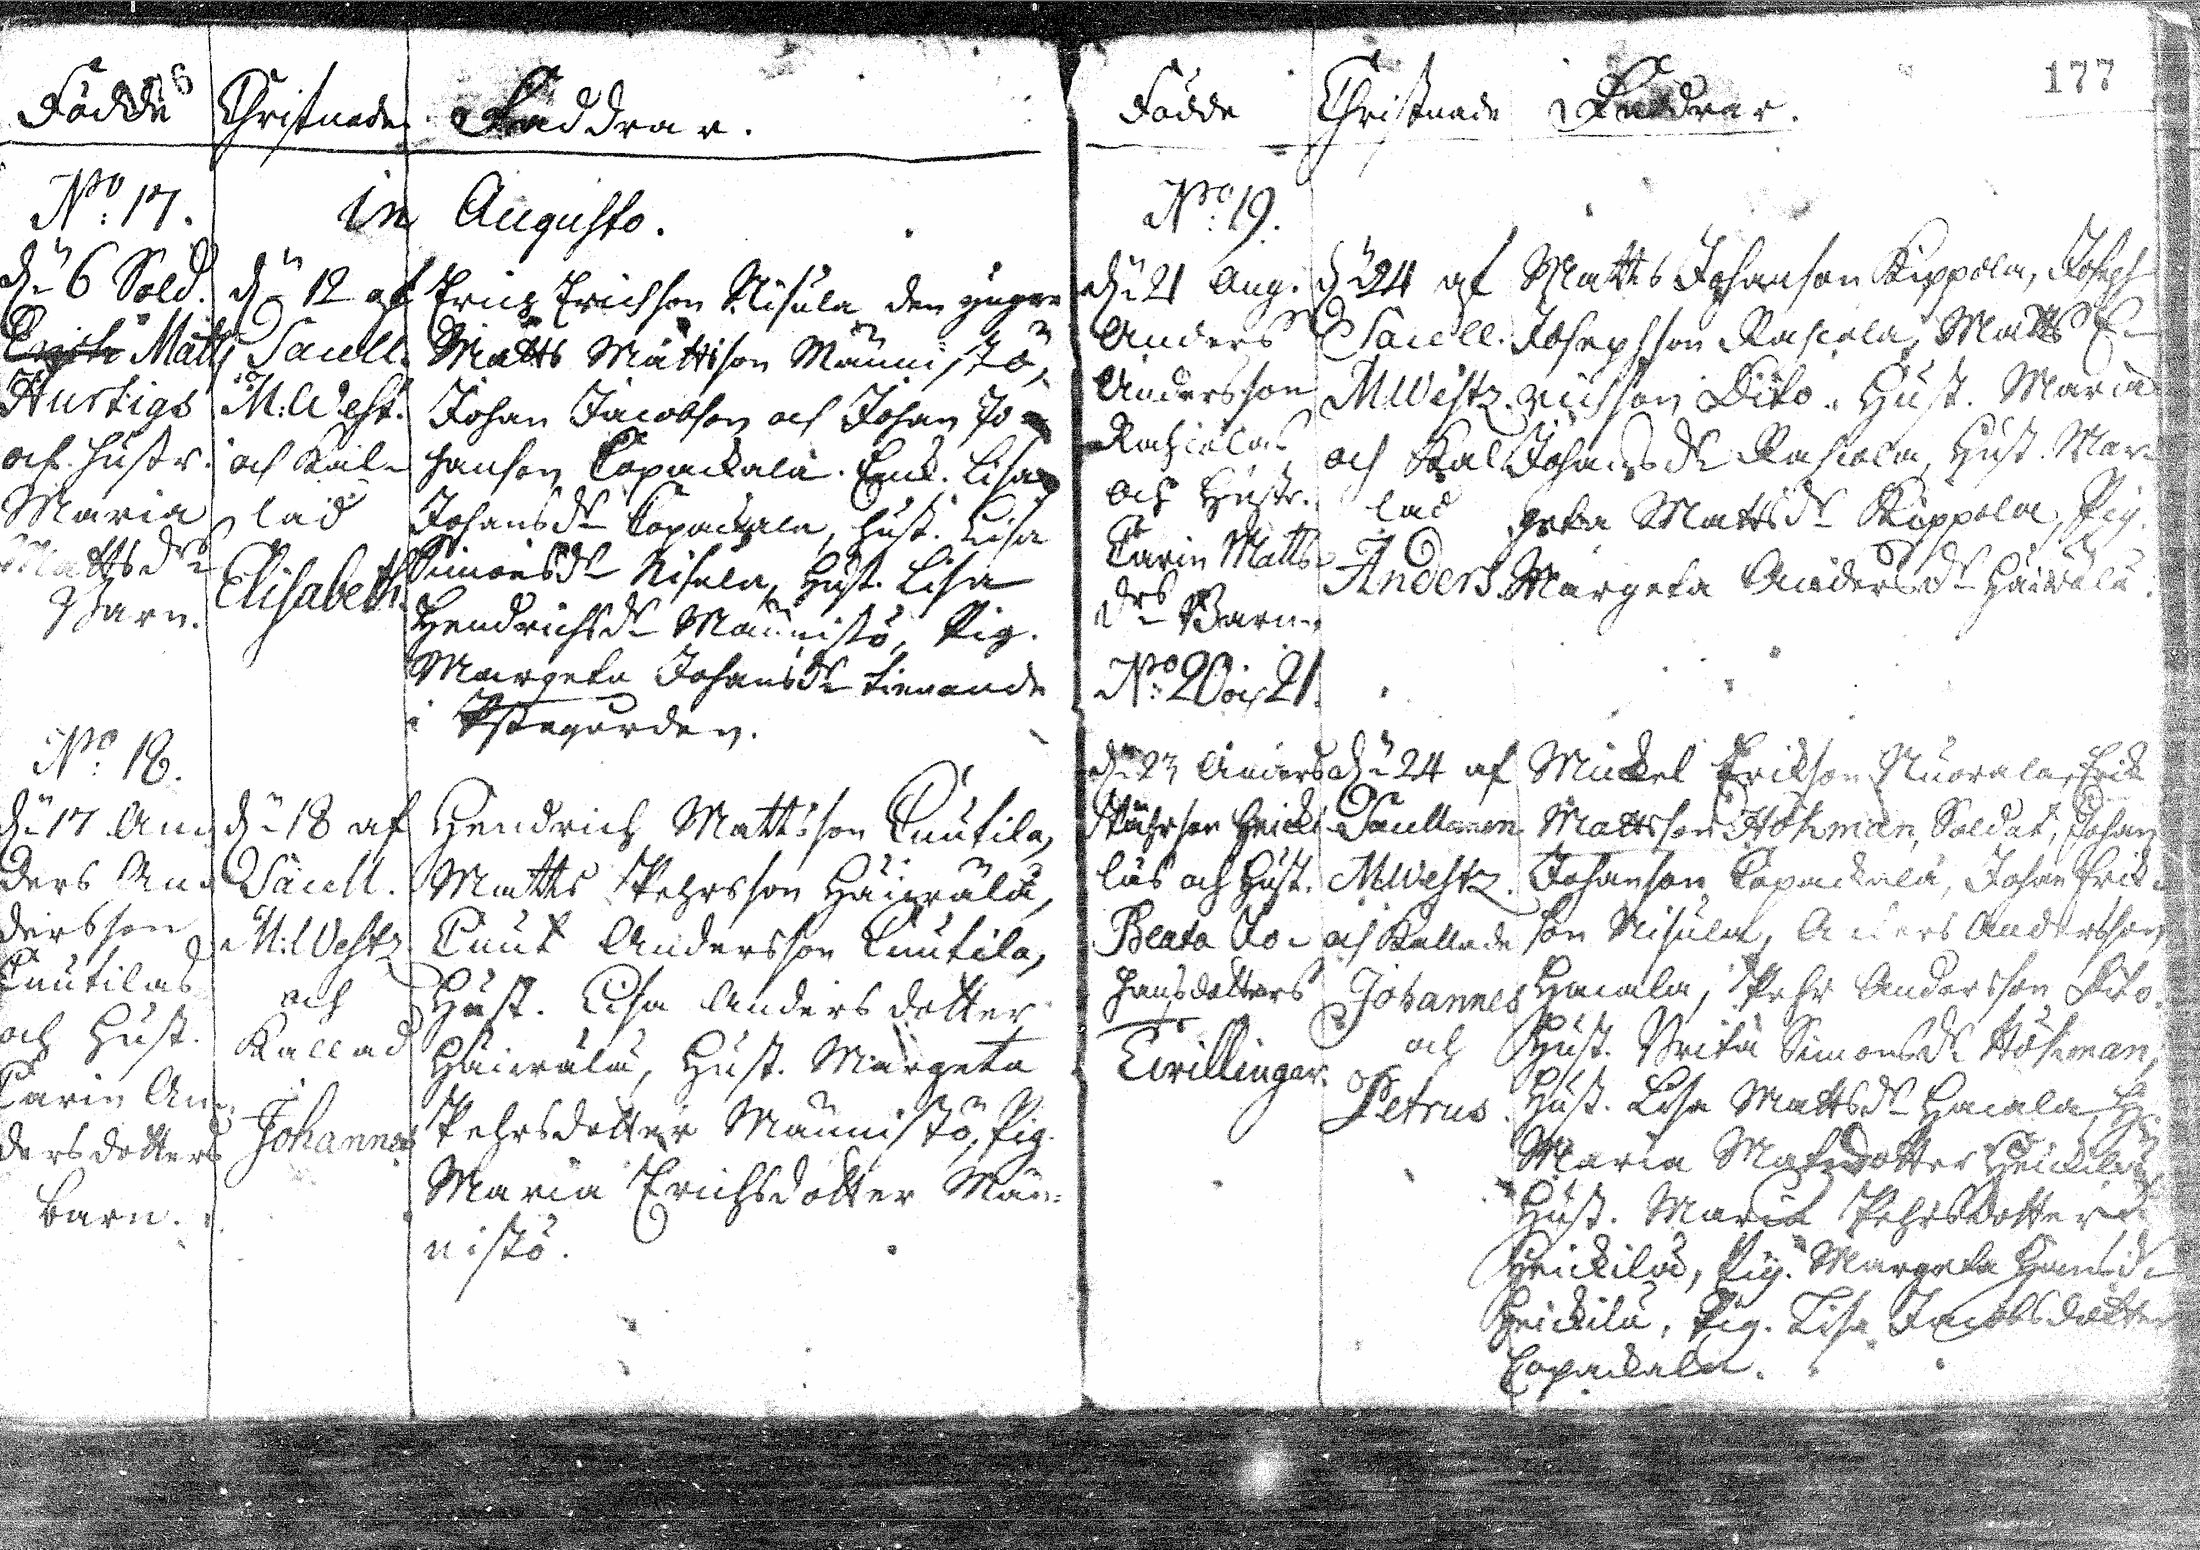 Födde
Christnade
Faddrar.
No: 17.
in Augusto.
dn 6 Sold.
Matts
Hurtigs
och hustr.
Maria
Mattsdrs
Barn.
dn 12 af
Sacell.
M: West.
och Kal-
lad
Elisabeth.
Eric Erichson Nisula den yngre
Matts Mattsson Männistö,
Johan Jacobson och Johan Jo-
hanson Copackala. Enk. Lisa
Johansdr Copackala, hust. Lisa
Simonsdr Nisula, Hust. Lisa
Hendrichsdr Männistö, Pig.
Margeta Johansdr tienande
i
No: 18.
dn 17 An-
ders An-
dersson
Cnutilas
och Hust.
Carin An-
dersdotters
barn.
dn 18 af
Sacell.
M: Westz
och
Kallad
Johannes
Hendrich Mattsson Cnutila,
Matts Pehrsson Häiwälä,
Cnut Andersson Cnutila,
Hust. Lisa Andersdotter
Häiwälä, Hust. Margeta
Pehrsdotter Männistö, Pig.
Maria Erichsdotter Män-
nistö.
177
Födde
Christnade
Faddrar.
No: 19.
dn 21 Aug.
Anders
Andersson
och Hustr.
Carin Matts-
drs Barn.
dn 24 af
Sacell.
M Westz.
och Kal-
lad
Anders.
Matts Johanson Kippola, Joseph
Josephson Rasiola, Matts E-
richson Dito. Hust. Maria
Johansdr Rasiola, Hust. Mar-
geta Mattsdr Kippola, Pig.
Margeta Andersdr Häiwälä.
No: 20 och 21.
dn 23 Anders
Pährson Heicki-
läs och Hust.
Beata Jo-
hansdotters
Twillingar.
dn 24 af
Sacellanen
M Westz.
och Kallade
Johannes
och
Petrus.
Mickel Erikson Nuorala, Erik
Mattsson Hökman, Soldat, Johan
Johanson Copackala, Johan Erik-
son Nisula, Anders Andersson
Haiala, Pehr Andersson Dito.
Hust. Brita Simonsdr Hökman,
Hust. Lisa Mattsdr Haiala, H:
Maria Matsdotter Heickilä,
Hust. Maria Pehrsdotter
Heickilä, Pig. Margeta Hansdr
Heickilä, Pig. Lisa Jacobsdotter
Copackala.